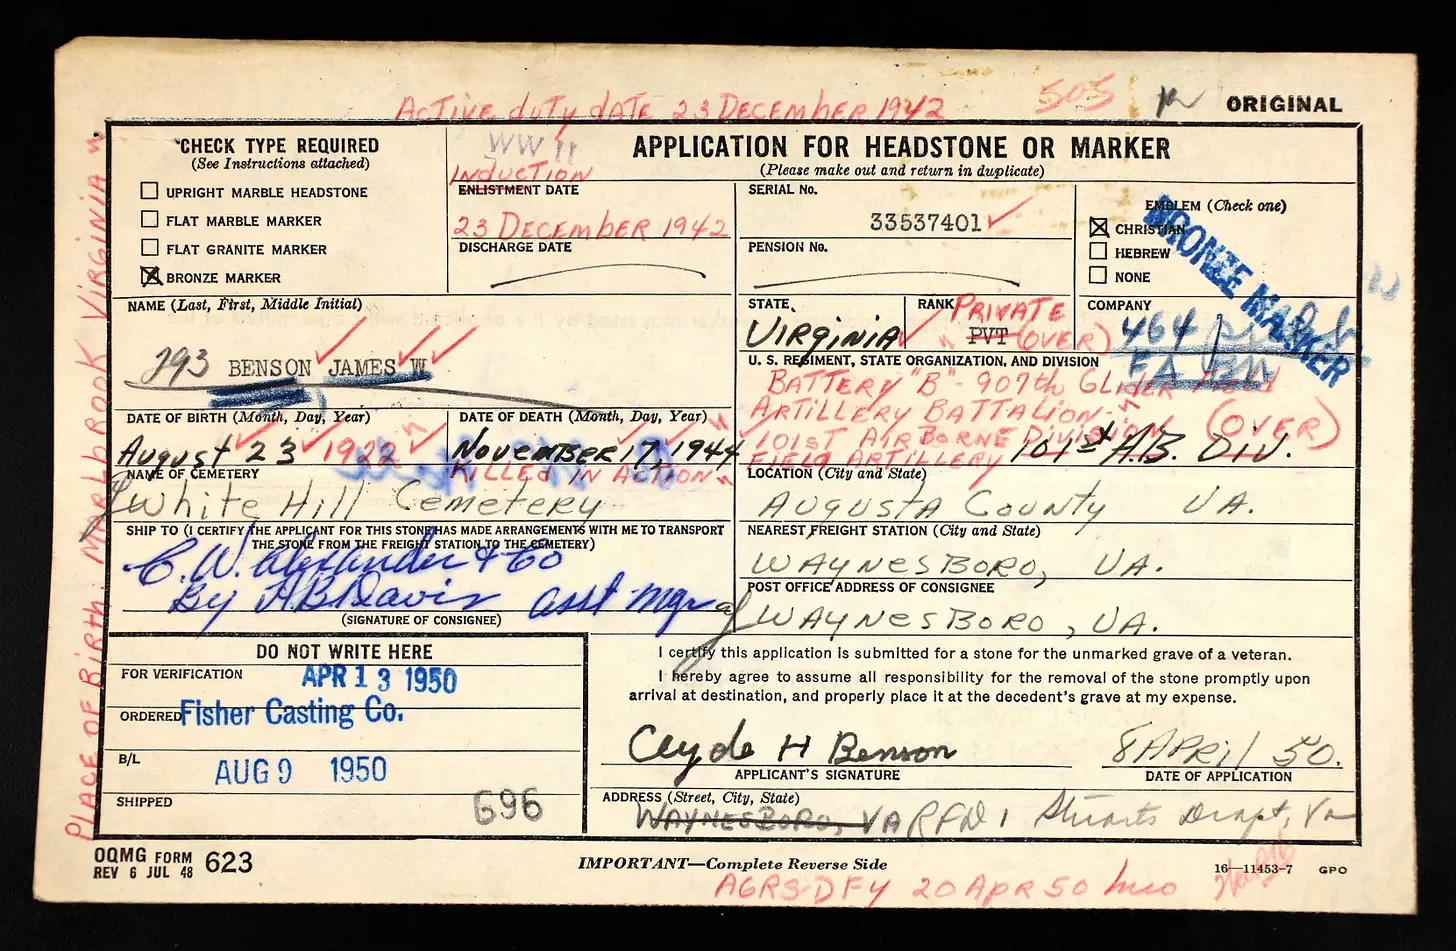 ACTIVE duty dATE 23 DECEMbER 1942
505
ORIGINAL
PLACE OF BIRTH MARLbROOK VIRGINIA
CHECK TYPE REQUIRED
(See Instructions attached)
UPRIGHT MARBLE HEADSTONE
FLAT MARBLE MARKER
FLAT GRANITE MARKER
BRONZE MARKER
WW II
INDUCTION
ENLISTMENT DATE
23 DECEMbER 1942
DISCHARGE DATE
APPLICATION FOR HEADSTONE OR MARKER
(Please make out and return in duplicate)
SERIAL No.
33537401
PENSION No.
EMBLEM (Check one)
CHRISTIAN
HEBREW
NONE
BRONZE MARKER
NAME (Last, First, Middle Initial)
293 BENSON JAMES W
STATE
VIRginiA
RANK PRIVATE
PVT (OVER)
COMPANY
464
FA BN
U. S. REGIMENT, STATE ORGANIZATION, AND DIVISION
BATTERY "B" - 907th GLIDER
ARTILLERY BATTALION-
101ST AIRBORNE DIVISION (OVER)
FIELD ARTILLERY 101st A.B. DIV.
DATE OF BIRTH (Month, Day, Year)
August 23 1922
DATE OF DEATH (Month, Day, Year)
NOVEMBER 17, 1944
KILLED IN ACTION
NAME OF CEMETERY
White Hill Cemetery
LOCATION (City and State)
AUGUSTA COUNTY VA.
SHIP TO (I CERTIFY THE APPLICANT FOR THIS STONE HAS MADE ARRANGEMENTS WITH ME TO TRANSPORT
THE STONE FROM THE FREIGHT STATION TO THE CEMETERY)
C. W. Alexander & Co
By H B Davis asst mgr
(SIGNATURE OF CONSIGNEE)
NEAREST FREIGHT STATION (City and State)
WAYNESBORO, VA.
POST OFFICE ADDRESS OF CONSIGNEE
WAYNESBORO, VA.
DO NOT WRITE HERE
FOR VERIFICATION
APR 13 1950
ORDERED Fisher Casting Co.
B/L
AUG 9 1950
SHIPPED
696
I certify this application is submitted for a stone for the unmarked grave of a veteran.
I hereby agree to assume all responsibility for the removal of the stone promptly upon
arrival at destination, and properly place it at the decedent's grave at my expense.
Clyde H Benson
APPLICANT'S SIGNATURE
8 APRil 50.
DATE OF APPLICATION
ADDRESS (Street, City, State)
WAYNESBORO, VA RFD 1 Stuarts Draft, Va
OQMG FORM 623
REV 6 JUL 48
IMPORTANT—Complete Reverse Side
16—11453-7 GPO
AGRS-DFY 20 Apr 50